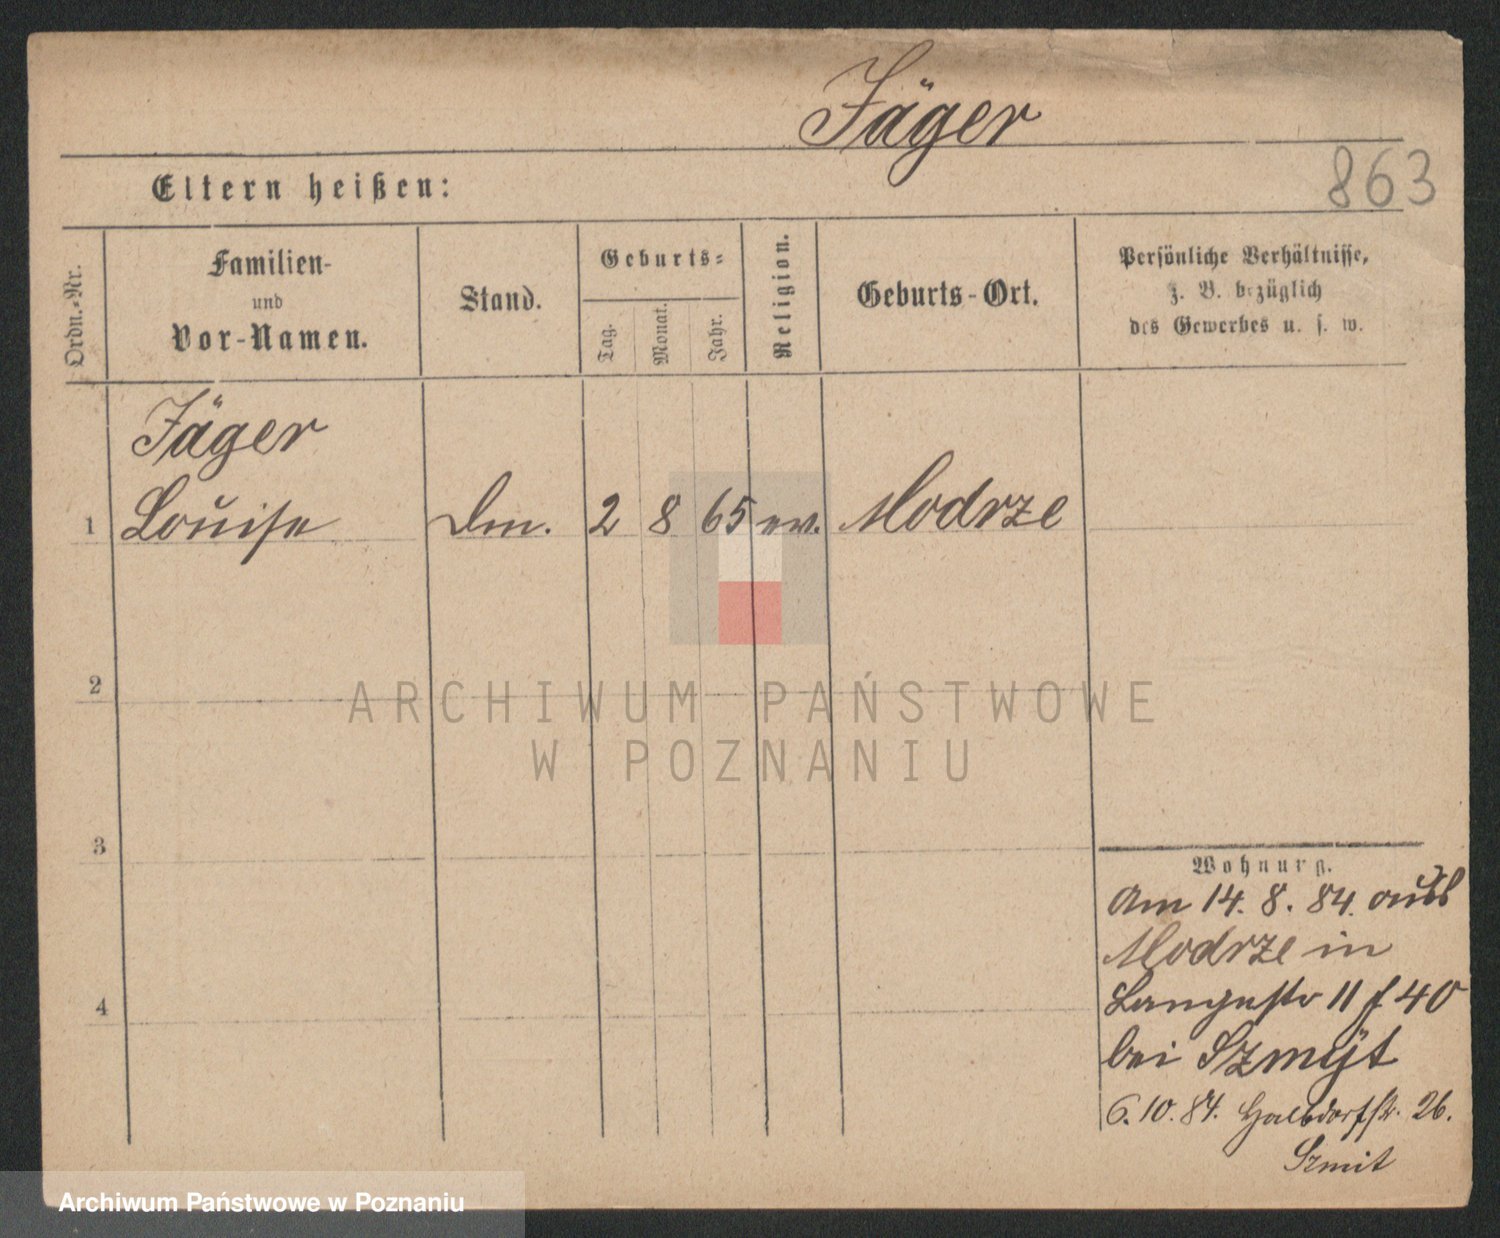 Jäger
863
Eltern heißen:
Ordn.-Nr.
Familien-
und
Vor-Namen.
Stand.
Geburts-
Tag.
Monat.
Jahr.
Religion.
Geburts-Ort.
Persönliche Verhältnisse,
z. B. bezüglich
des Gewerbes u. s. w.
Jäger
1 Louise Dm. 2 8 65 ev. Modrze
2
3
4
Wohnung.
Am 14. 8. 84. aus
Modrze in
Langestr 11 f 40
bei Szmyt
6. 10. 84. Halbdorfstr. 26.
Szmit
ARCHIWUM PAŃSTWOWE
W POZNANIU
Archiwum Państwowe w Poznaniu